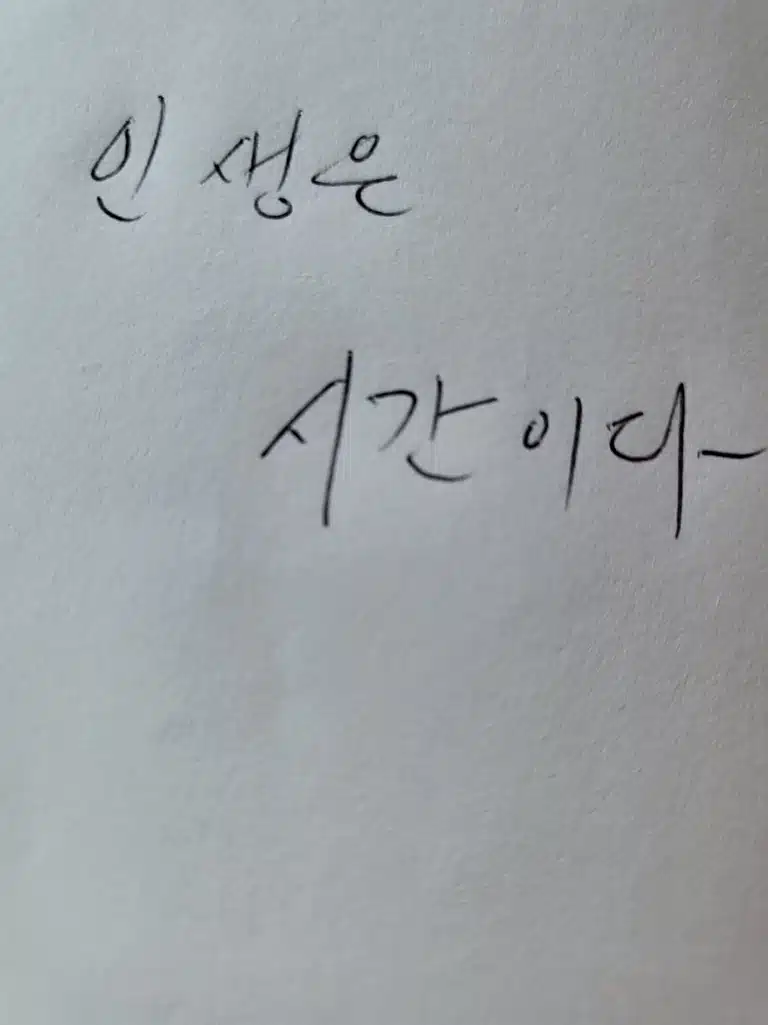 인생은
시간이다